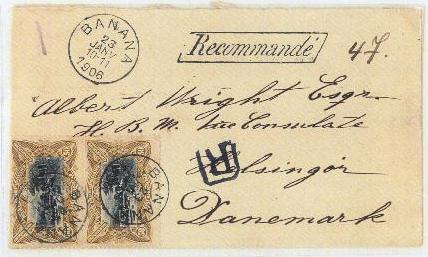 BANANA
23
JANV
10-11
1906
Recommandé
47.
Albert Wright Esqre
H. B. M. Vice Consulate
R
Helsingör
Danemark
BANANA
BANANA